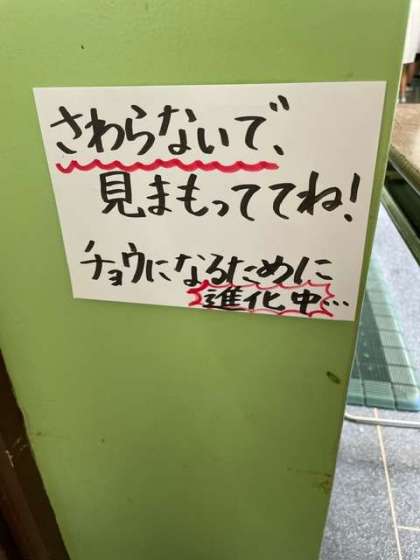 さわらないで、
見まもっててね!
チョウになるために
進化中…